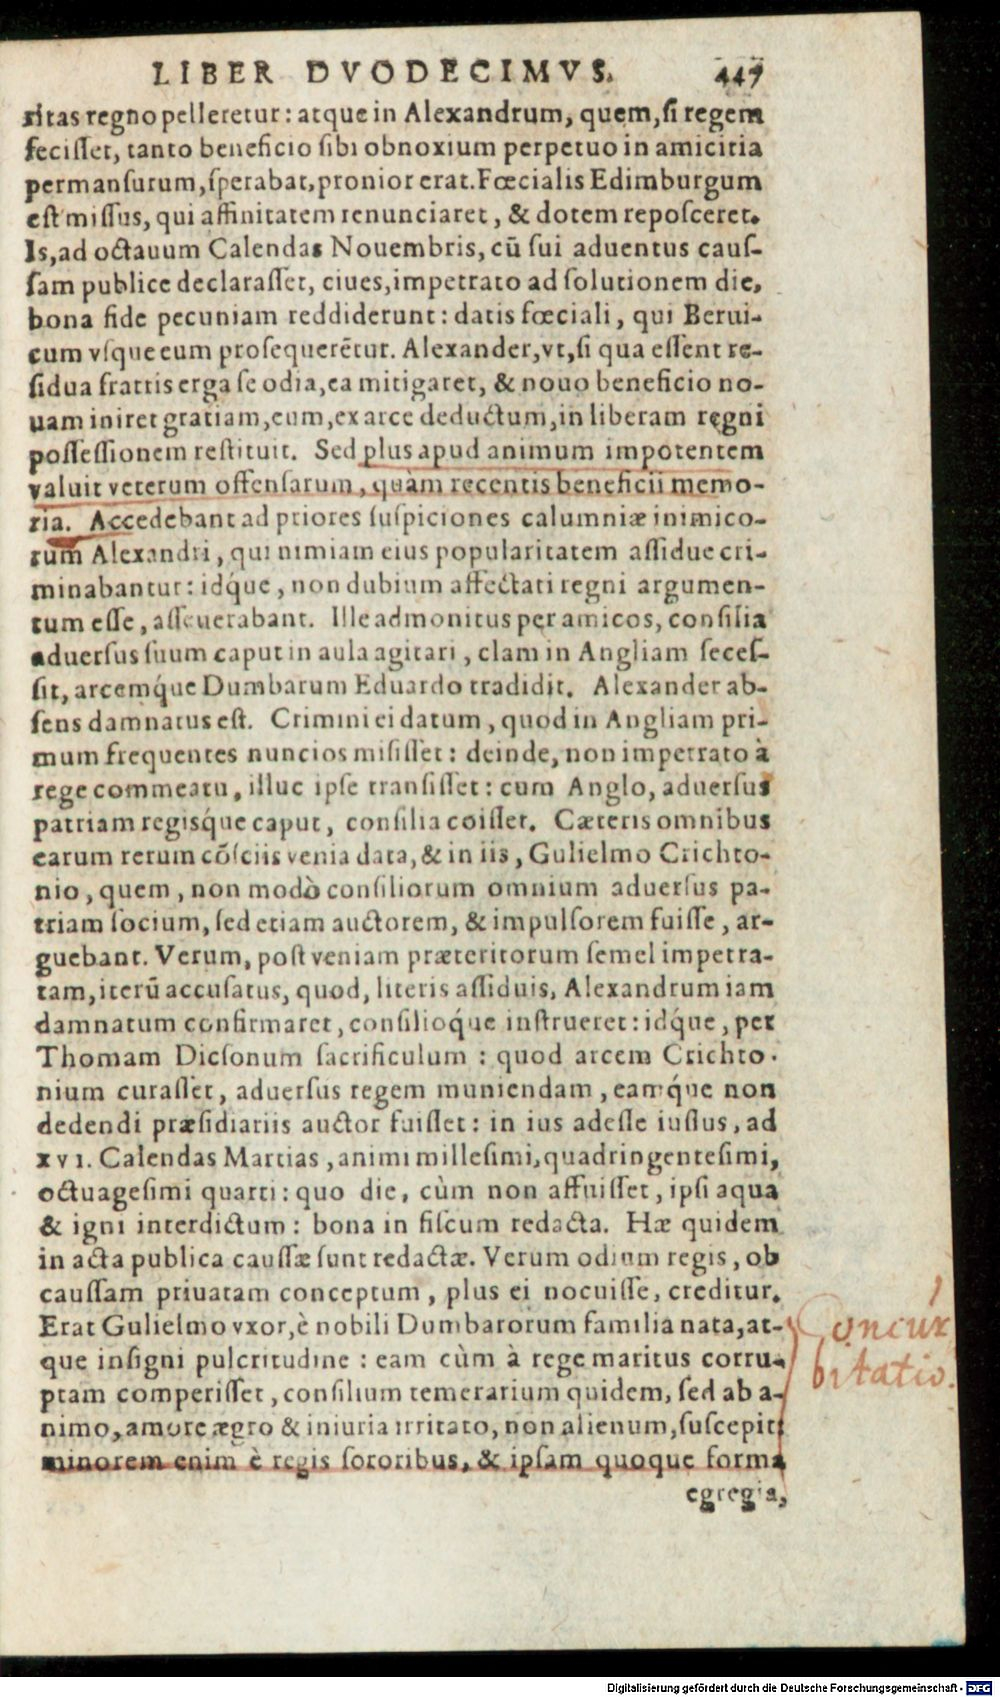 LIBER DVODECIMVS. 447
ritas regno pelleretur: atque in Alexandrum, quem, si regem
fecisset, tanto beneficio sibi obnoxium perpetuo in amicitia
permansurum, sperabat, pronior erat. Fœcialis Edimburgum
est missus, qui affinitatem renunciaret, & dotem reposceret.
Is, ad octauum Calendas Nouembris, cū sui aduentus caus-
sam publice declarasset, ciues, impetrato ad solutionem die,
bona fide pecuniam reddiderunt: datis fœciali, qui Berui-
cum vsque eum prosequerētur. Alexander, vt, si qua essent re-
sidua fratris erga se odia, ea mitigaret, & nouo beneficio no-
uam iniret gratiam, eum, ex arce deductum, in liberam ręgni
possessionem restituit. Sed plus apud animum impotentem
valuit veterum offensarum, quàm recentis beneficii memo-
ria. Accedebant ad priores suspiciones calumniæ inimico-
rum Alexandri, qui nimiam eius popularitatem assidue cri-
minabantur: idq́ue, non dubium affectati regni argumen-
tum esse, asseuerabant. Ille admonitus per amicos, consilia
aduersus suum caput in aula agitari, clam in Angliam seces-
sit, arcemq́ue Dumbarum Eduardo tradidit. Alexander ab-
sens damnatus est. Crimini ei datum, quod in Angliam pri-
mum frequentes nuncios misisset: deinde, non impetrato à
rege commeatu, illuc ipse transisset: cum Anglo, aduersus
patriam regisq́ue caput, consilia coisset. Cæteris omnibus
earum rerum cōsciis venia data, & in iis, Gulielmo Crichto-
nio, quem, non modò consiliorum omnium aduersus pa-
triam socium, sed etiam auctorem, & impulsorem fuisse, ar-
guebant. Verum, post veniam præteritorum semel impetra-
tam, iterū accusatus, quod, literis assiduis, Alexandrum iam
damnatum confirmaret, consilioq́ue instrueret: idq́ue, per
Thomam Dicsonum sacrificulum: quod arcem Crichto-
nium curasset, aduersus regem muniendam, eamq́ue non
dedendi præsidiariis auctor fuisset: in ius adesse iussus, ad
XVI. Calendas Martias, animi millesimi, quadringentesimi,
octuagesimi quarti: quo die, cùm non affuisset, ipsi aqua
& igni interdictum: bona in fiscum redacta. Hæ quidem
in acta publica caussæ sunt redactæ. Verum odium regis, ob
caussam priuatam conceptum, plus ei nocuisse, creditur.
Erat Gulielmo vxor, è nobili Dumbarorum familia nata, at-
que insigni pulcritudine: eam cùm à rege maritus corru-
ptam comperisset, consilium temerarium quidem, sed ab a-
nimo, amore ægro & iniuria irritato, non alienum, suscepit:
minorem enim è regis sororibus, & ipsam quoque forma
egregia,
Concúr
bitatio.
Digitalisierung gefördert durch die Deutsche Forschungsgemeinschaft - DFG